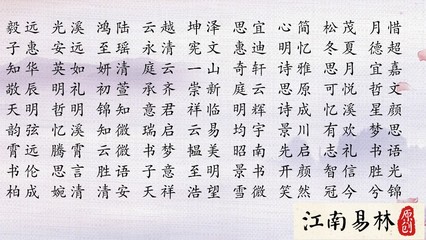 毅远 光溪 鸿陆 云越 坤泽 思宜 心简 松茂 月惜
子惠 安远 至瑶 永清 宪文 惠迪 明忆 冬夏 德超
知华 英如 妍清 庭云 一山 奇轩 诗雅 思月 宜嘉
敬辰 明礼 初萱 承齐 崇新 庭云 思原 可悦 哲文
天明 哲明 锦知 意君 祥临 明辉 诗成 忆溪 星颜
韵弦 忆溪 知微 瑞启 云易 均宇 景川 有欢 梦思
霄远 腾霄 云微 书梦 韫美 昭南 先启 志礼 书语
书伦 思言 胜语 子意 至明 景书 开颜 智信 胜光
柏成 婉清 清安 天祥 浩望 雪微 笑然 冠今 兮锦
江南易林
原创